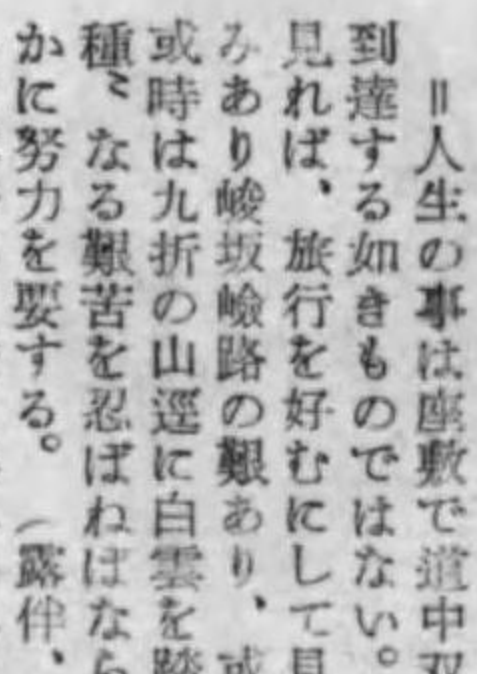 =人生の事は座敷で道中双
到達する如きものではない。
見れば、旅行を好むにして見
みあり峻坂嶮路の艱あり、或
或時は九折の山逕に白雲を踏
種〻なる艱苦を忍ばねばなら
かに努力を要する。（露伴、